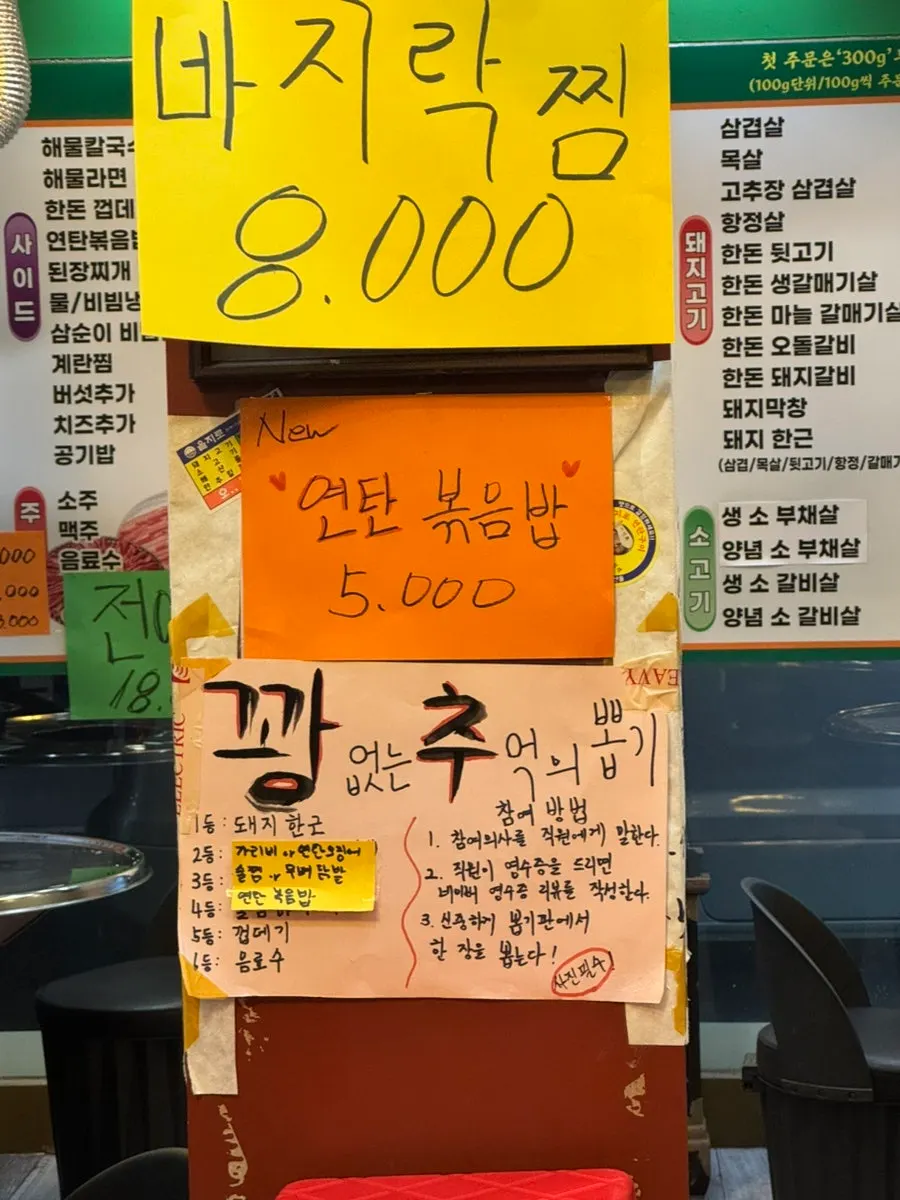 바지락찜
8.000
New
연탄 볶음밥
5.000
꽝 없는 추억의 뽑기
1등: 돼지 한근
2등: 가리비 or 연탄오징어
3등: 술찜 or 무뼈 닭발
4등: 연탄 볶음밥
5등: 껍데기
6등: 음료수
참여 방법
1. 참여의사를 직원에게 말한다.
2. 직원이 영수증을 드리면
네이버 영수증 리뷰를 작성한다.
3. 신중하게 뽑기판에서
한 장을 뽑는다!
사진필수!
사이드
해물칼국수
해물라면
한돈 껍데
연탄볶음밥
된장찌개
물/비빔냉
삼순이 비빔
계란찜
버섯추가
치즈추가
공기밥
주
소주
맥주
음료수
000
.000
3.000
전
18.
첫 주문은'300g'
(100g단위/100g씩 주문
돼지고기
삼겹살
목살
고추장 삼겹살
항정살
한돈 뒷고기
한돈 생갈매기살
한돈 마늘 갈매기살
한돈 오돌갈비
한돈 돼지갈비
돼지막창
돼지 한근
(삼겹/목살/뒷고기/항정/갈매기
소고기
생 소 부채살
양념 소 부채살
생 소 갈비살
양념 소 갈비살
을지로
ELECTRIC
EAVY